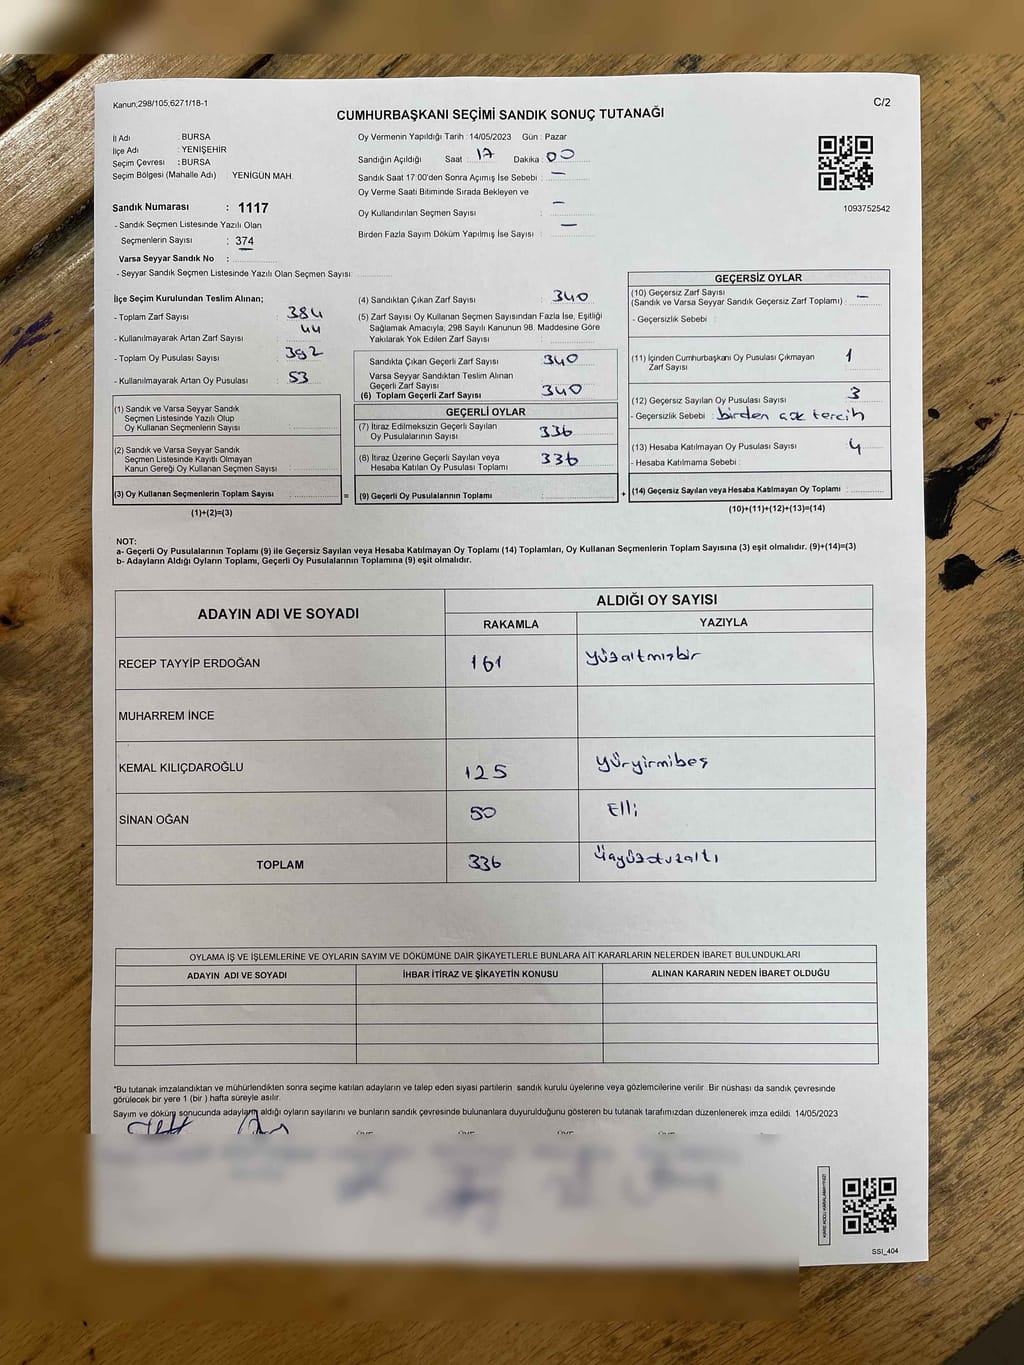 Kanun;298/105,6271/18-1
C/2
CUMHURBAŞKANI SEÇİMİ SANDIK SONUÇ TUTANAĞI
İl Adı : BURSA
İlçe Adı : YENİŞEHİR
Seçim Çevresi : BURSA
Seçim Bölgesi (Mahalle Adı) : YENİGÜN MAH.
Sandık Numarası : 1117
- Sandık Seçmen Listesinde Yazılı Olan
Seçmenlerin Sayısı : 374
Varsa Seyyar Sandık No :
- Seyyar Sandık Seçmen Listesinde Yazılı Olan Seçmen Sayısı
Oy Vermenin Yapıldığı Tarih : 14/05/2023 Gün : Pazar
Sandığın Açıldığı Saat : 17 Dakika : 00
Sandık Saat 17:00'den Sonra Açımış İse Sebebi : —
Oy Verme Saati Bitiminde Sırada Bekleyen ve
Oy Kullandırılan Seçmen Sayısı : —
Birden Fazla Sayım Döküm Yapılmış İse Sayısı : —
1093752542
İlçe Seçim Kurulundan Teslim Alınan;
- Toplam Zarf Sayısı : 384
- Kullanılmayarak Artan Zarf Sayısı : 44
- Toplam Oy Pusulası Sayısı : 392
- Kullanılmayarak Artan Oy Pusulası : 53
(1) Sandık ve Varsa Seyyar Sandık
Seçmen Listesinde Yazılı Olup
Oy Kullanan Seçmenlerin Sayısı :
(2) Sandık ve Varsa Seyyar Sandık
Seçmen Listesinde Kayıtlı Olmayan
Kanun Gereği Oy Kullanan Seçmen Sayısı :
(3) Oy Kullanan Seçmenlerin Toplam Sayısı :
(1)+(2)=(3)
(4) Sandıktan Çıkan Zarf Sayısı : 340
(5) Zarf Sayısı Oy Kullanan Seçmen Sayısından Fazla İse, Eşitliği
Sağlamak Amacıyla; 298 Sayılı Kanunun 98. Maddesine Göre
Yakılarak Yok Edilen Zarf Sayısı :
Sandıkta Çıkan Geçerli Zarf Sayısı : 340
Varsa Seyyar Sandıktan Teslim Alınan
Geçerli Zarf Sayısı :
(6) Toplam Geçerli Zarf Sayısı : 340
GEÇERLİ OYLAR
(7) İtiraz Edilmeksizin Geçerli Sayılan
Oy Pusulalarının Sayısı : 336
(8) İtiraz Üzerine Geçerli Sayılan veya
Hesaba Katılan Oy Pusulası Toplamı : 336
= (9) Geçerli Oy Pusulalarının Toplamı :
GEÇERSİZ OYLAR
(10) Geçersiz Zarf Sayısı
(Sandık ve Varsa Seyyar Sandık Geçersiz Zarf Toplamı) : —
- Geçersizlik Sebebi :
(11) İçinden Cumhurbaşkanı Oy Pusulası Çıkmayan
Zarf Sayısı : 1
(12) Geçersiz Sayılan Oy Pusulası Sayısı : 3
- Geçersizlik Sebebi : birden çok tercih
(13) Hesaba Katılmayan Oy Pusulası Sayısı : 4
- Hesaba Katılmama Sebebi :
+ (14) Geçersiz Sayılan veya Hesaba Katılmayan Oy Toplamı :
(10)+(11)+(12)+(13)=(14)
NOT:
a- Geçerli Oy Pusulalarının Toplamı (9) ile Geçersiz Sayılan veya Hesaba Katılmayan Oy Toplamı (14) Toplamları, Oy Kullanan Seçmenlerin Toplam Sayısına (3) eşit olmalıdır. (9)+(14)=(3)
b- Adayların Aldığı Oyların Toplamı, Geçerli Oy Pusulalarının Toplamına (9) eşit olmalıdır.
ADAYIN ADI VE SOYADI ALDIĞI OY SAYISI
RAKAMLA YAZIYLA
RECEP TAYYİP ERDOĞAN 161 yüzaltmışbir
MUHARREM İNCE
KEMAL KILIÇDAROĞLU 125 yüzyirmibeş
SİNAN OĞAN 50 Elli
TOPLAM 336 üçyüzotuzaltı
OYLAMA İŞ VE İŞLEMLERİNE VE OYLARIN SAYIM VE DÖKÜMÜNE DAİR ŞİKAYETLERLE BUNLARA AİT KARARLARIN NELERDEN İBARET BULUNDUKLARI
ADAYIN ADI VE SOYADI İHBAR İTİRAZ VE ŞİKAYETİN KONUSU ALINAN KARARIN NEDEN İBARET OLDUĞU
*Bu tutanak imzalandıktan ve mühürlendikten sonra seçime katılan adayların ve talep eden siyasi partilerin sandık kurulu üyelerine veya gözlemcilerine verilir. Bir nüshası da sandık çevresinde
görülecek bir yere 1 (bir ) hafta süreyle asılır.
Sayım ve döküm sonucunda adayların aldığı oyların sayılarını ve bunların sandık çevresinde bulunanlara duyurulduğunu gösteren bu tutanak tarafımızdan düzenlenerek imza edildi. 14/05/2023
SSI_404